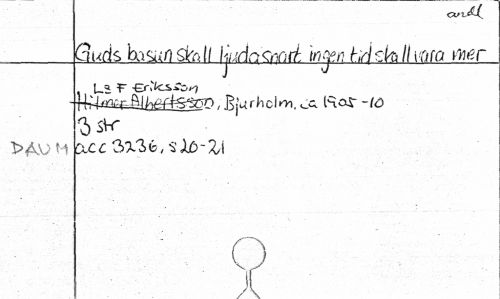 andl
Guds basun skall ljuda snart ingen tid skall vara mer
L F Eriksson
Hilmer Albertsson, Bjurholm, ca 1905-10
3 str
DAUM acc 3236, s 20-21